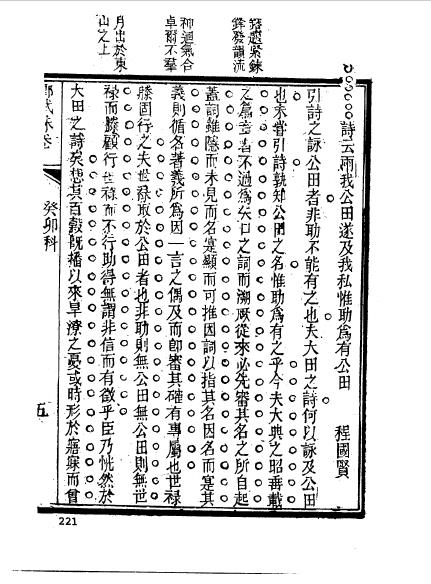 鍛鍊緊
鋒發韻流
神迴氣合
卓爾不羣
月出於東
山之上
詩云雨我公田遂及我私惟助爲有公田
程國賢
引詩之詠公田者非助不能有之也夫大田之詩何以詠及公田
也未嘗引詩孰知公田之名惟助爲有之乎今夫大典之昭垂載
之篇章者不過爲矢口之詞而溯厥從來必先審其名之所自起
蓋詞雖隱而未見而名寔顯而可推因詞以指其名因名而寔其
義則循名著義所爲因一言之偶及而卽審其確有專屬也世祿
滕固行之夫世祿取於公田者也非助則無公田無公田則無世
祿而滕顧行世祿而不行助得無謂非信而有徵乎臣乃恍然於
大田之詩矣想其百穀旣播以來旱潦之憂或時形於寤寐而曾
癸卯科
五
221